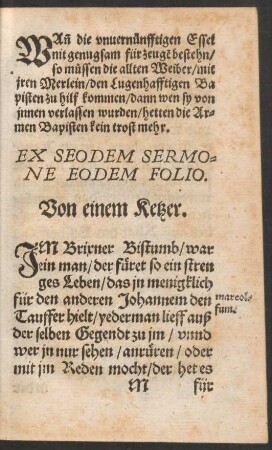 WAñ die vnuernünfftigen Essel
nit genugsam für zeugt bestehn/
so müssen die allten Weiber/mit
jren Merlein/den Lugenhafftigen Ba
pisten zu hilf kommen/dann wen sy von
jnnen verlassen wurden/hetten die Ar-
men Bapisten kein trost mehr.
EX SEODEM SERMO-
NE EODEM FOLIO.
Von einem Ketzer.
IM Brixner Bistumb/war
ein man/der füret so ein stren
ges Leben/das jn menigklich
für den anderen Johannem den
Tauffer hielt/yederman lieff auß
der selben Gegendt zu jm/vnnd
wer jn nur sehen/anrüren/oder
mit jm Reden mocht/der het es
M für